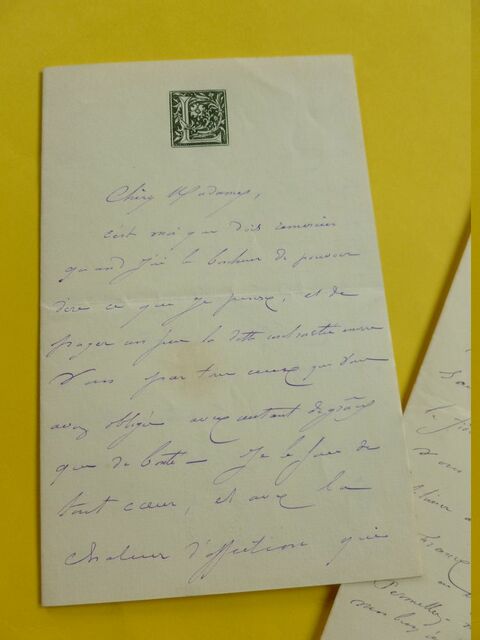 L
Chère Madame,
c'est moi qui dois remercier
quand j'ai le bonheur de pouvoir
dire ce que je pense, et de
payer un peu la dette contractée envers
Vous par tous ceux que Vous
avez obligés avec autant de grâce
que de bonté — Je le fais de
tout cœur, et avec la
chaleur d'affection que
Vous
France